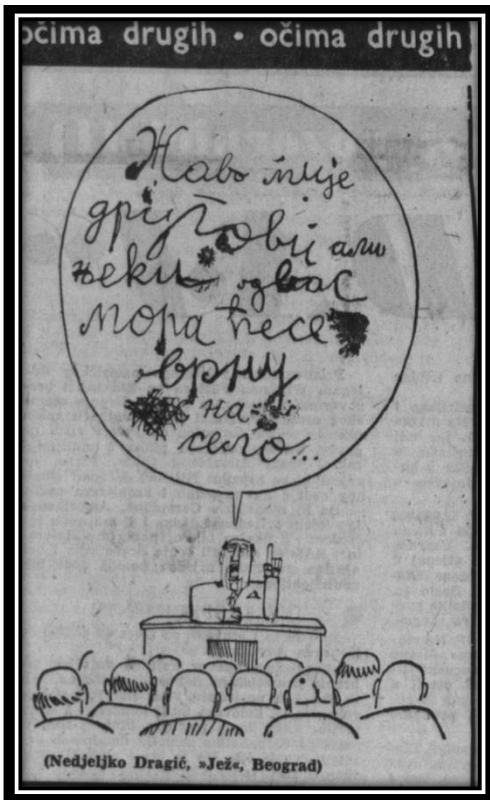 očima drugih • očima drugih
Жаво мије
другови али
њеки одвас
мора ћесе
врну
на
село...
A
(Nedjeljko Dragić, »Jež«, Beograd)